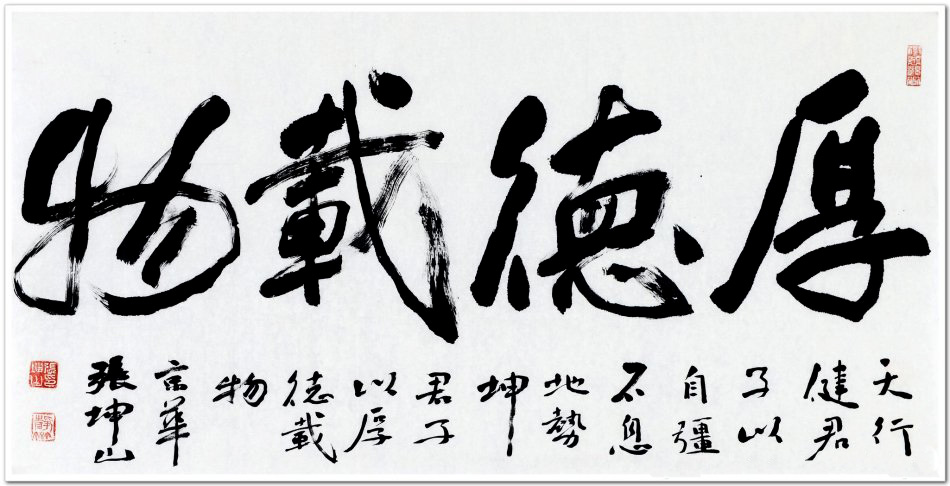 厚德載物
天行
健君
子以
自疆
不息
地勢
坤
君子
以厚
德載
物
京華
張坤山